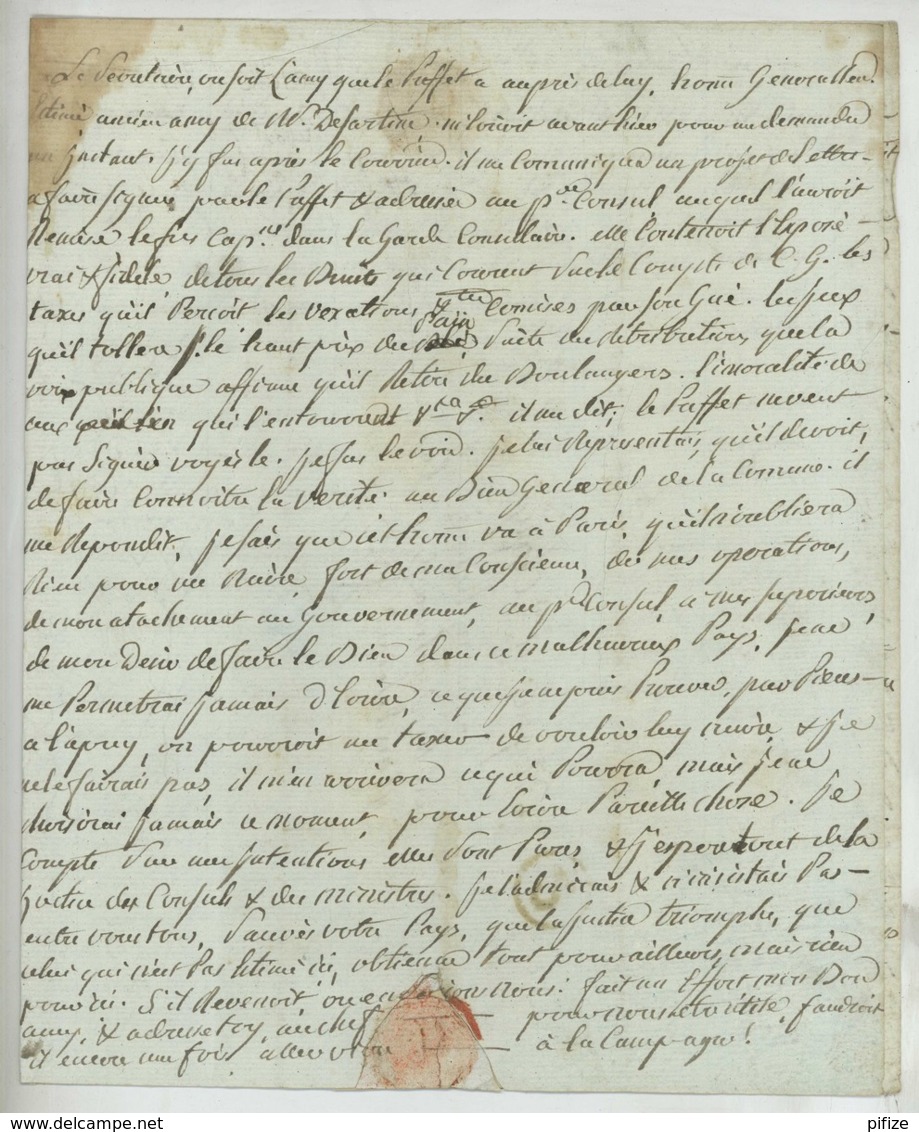 Le Secretaire, ou soit L'amy que le Paffet a auprès de luy, hom Generallem.
Estimé, ancien amy de Mr. Desartine. m'ecrivit avant hier pour me demander
un Instant. J'y fus après le Courrier. il me Comuniqua un projet de Lettre
a faire signer par le Paffet & adresser au pr. Consul auquel l'auroit
Remise le fils Cap.ne dans la Garde Consulaire. elle Contenoit l'Exposé
vrai & fidele de tous les Bruits qui Courent sur le Compte de C. G. les
taxes qu'il Percoit les vexations Comises par son Gré. les jeux
qu'il tollere, le haut prix du Pain suite du retribution que la
voix publique affirme qu'il Retire des Boulangers. l'imoralité de
ceux qui l'entourent &ca &a. il me dit, le Paffet ne veut
pas signer voyés le. Je fus le voir. je lui Representais, qu'il devoit,
de faire Connoitre la verité au Bien General de la Comune. il
me Repondit, je sais que cet hom va à Paris, qu'il n'oubliera
Rien pour me Nuire, fort de ma Conscience, de mes operations,
de mon atachement au Gouvernement, au pr Consul, a mes superieurs,
de mon Desir de faire le Bien dans ce malheureux Pays, je ne
me Permetrai jamais d'Ecrire, ce que je ne puis Prouver, par Pieces
a l'apuy, on pouroit me taxer de vouloir luy nuire & je
ne le fairais pas, il m'en arrivera ce qui Poura, mais je ne
choisirai jamais ce moment, pour Ecrire Pareille chose. Je
Compte sur mes Intentions elles sont Pures & j'espere tout de la
Justice des Consuls & des ministres. Je l'admirais & n'insistais Pas
entre vous tous, Sauvés votre Pays, que la Justice triomphe, que
celui qui n'est Pas Estimé ici, obtienne tout pour ailleurs, mais rien
pour ici. S'il Revenoit, ou en serions nous! fait un Effort mon Bon
amy, & adresse toy, au chef pour nous etre utile, faudroit
il encore une fois aller vivre à la Campagne!
pifize